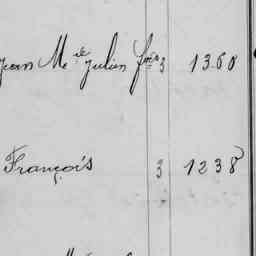 Jean M.ie Julien f.çois 3 1360
François 3 1238